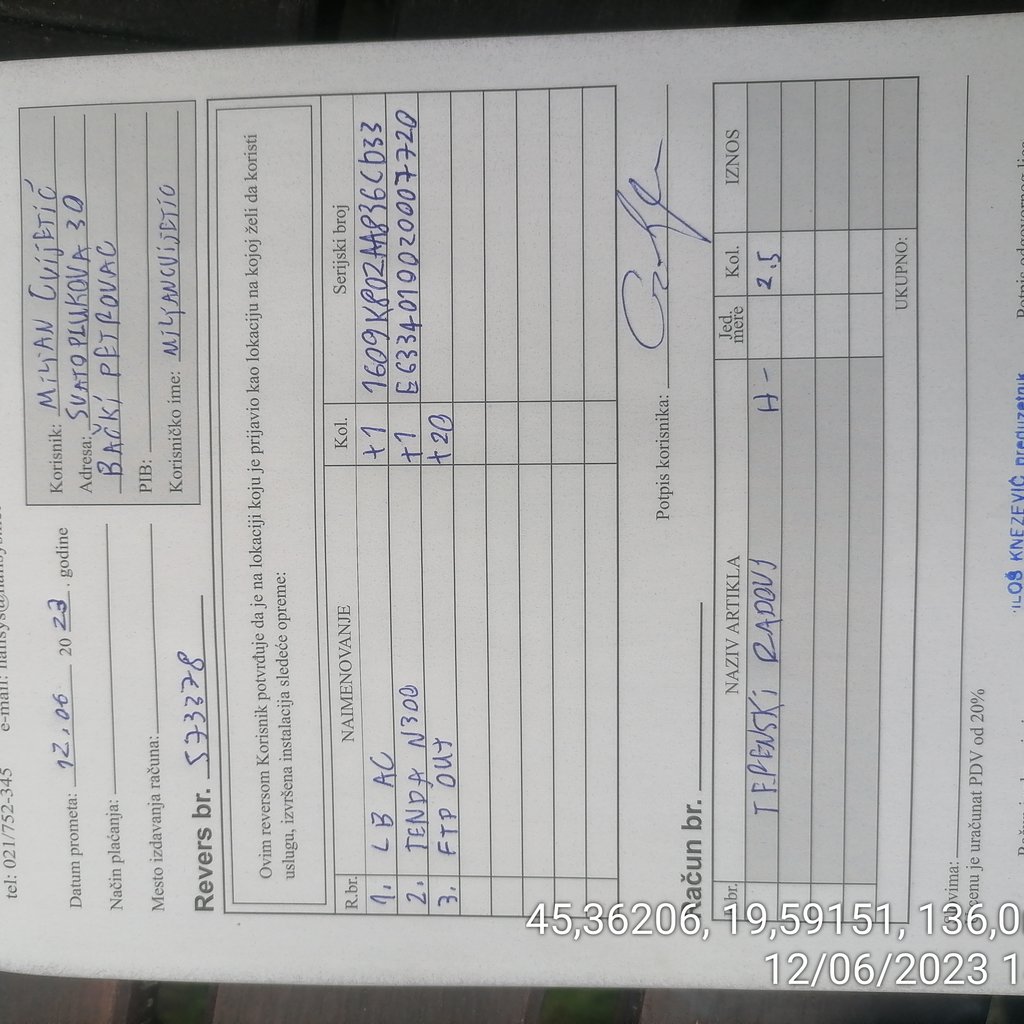 tel: 021/752-345 e-mail:
Datum prometa: 12.06 2023. godine
Način plaćanja:
Mesto izdavanja računa:
Korisnik: MILJAN CVIJETIĆ
Adresa: SVATOPLUKOVA 30
BAČKI PETROVAC
PIB:
Korisničko ime: MILJANCVIJETIC
Revers br. 573378
Ovim reversom Korisnik potvrđuje da je na lokaciji koju je prijavio kao lokaciju na kojoj želi da koristi
uslugu, izvršena instalacija sledeće opreme:
R.br. NAIMENOVANJE Kol. Serijski broj
1. LB AC +1 1609K802AA836CD33
2. TENDA N300 +1 E6334019020007720
3. FTP OUT +20
Potpis korisnika:
Račun br.
br. NAZIV ARTIKLA Jed. mere Kol. IZNOS
TERENSKI RADOVI H- 2.5
UKUPNO:
cenu je uračunat PDV od 20%
KNEZEVIĆ preduzetnik
45,36206, 19,59151, 136,0
12/06/2023 1